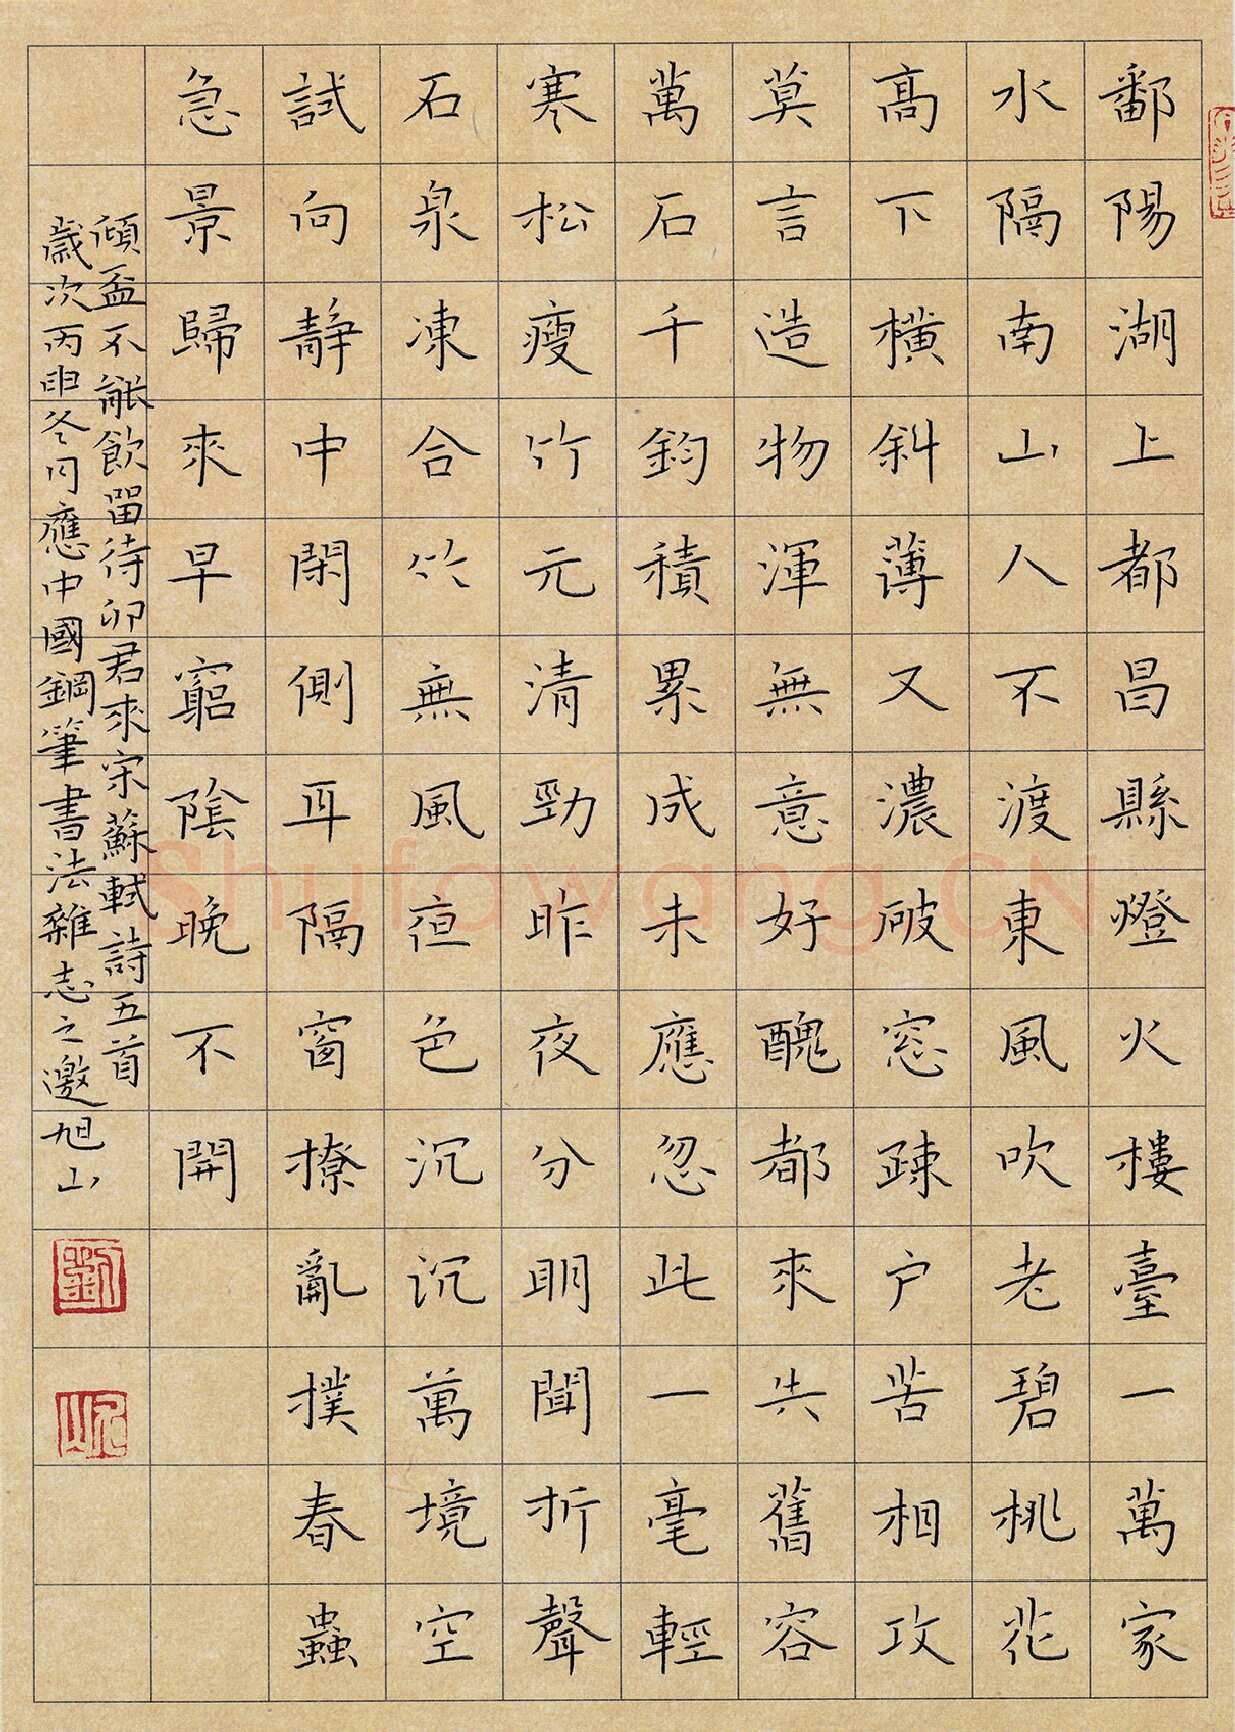 鄱陽湖上都昌縣燈火樓臺一萬家
水隔南山人不渡東風吹老碧桃花
高下橫斜薄又濃破窓疎户苦相攻
莫言造物渾無意好醜都來共舊容
萬石千鈞積累成未應忽此一毫輕
寒松瘦竹元清勁昨夜分明聞折聲
石泉凍合竹無風夜色沉沉萬境空
試向靜中閑側耳隔窗撩亂撲春蟲
急景歸來早窮陰晚不開
傾盃不能飲留待卯君來宋蘇軾詩五首
歲次丙申冬月應中國鋼筆書法雜志之邀旭山
Shufawang.CN